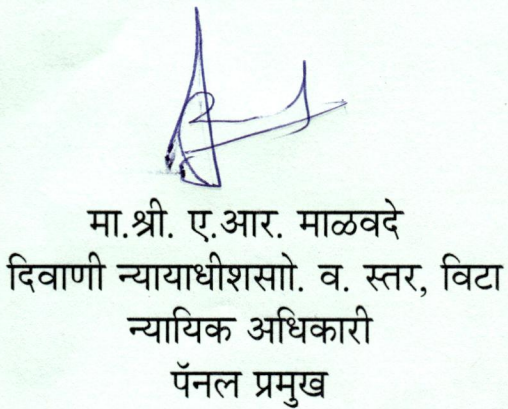 मा.श्री. ए.आर. माळवदे
दिवाणी न्यायाधीशसाो. व. स्तर, विटा
न्यायिक अधिकारी
पॅनल प्रमुख